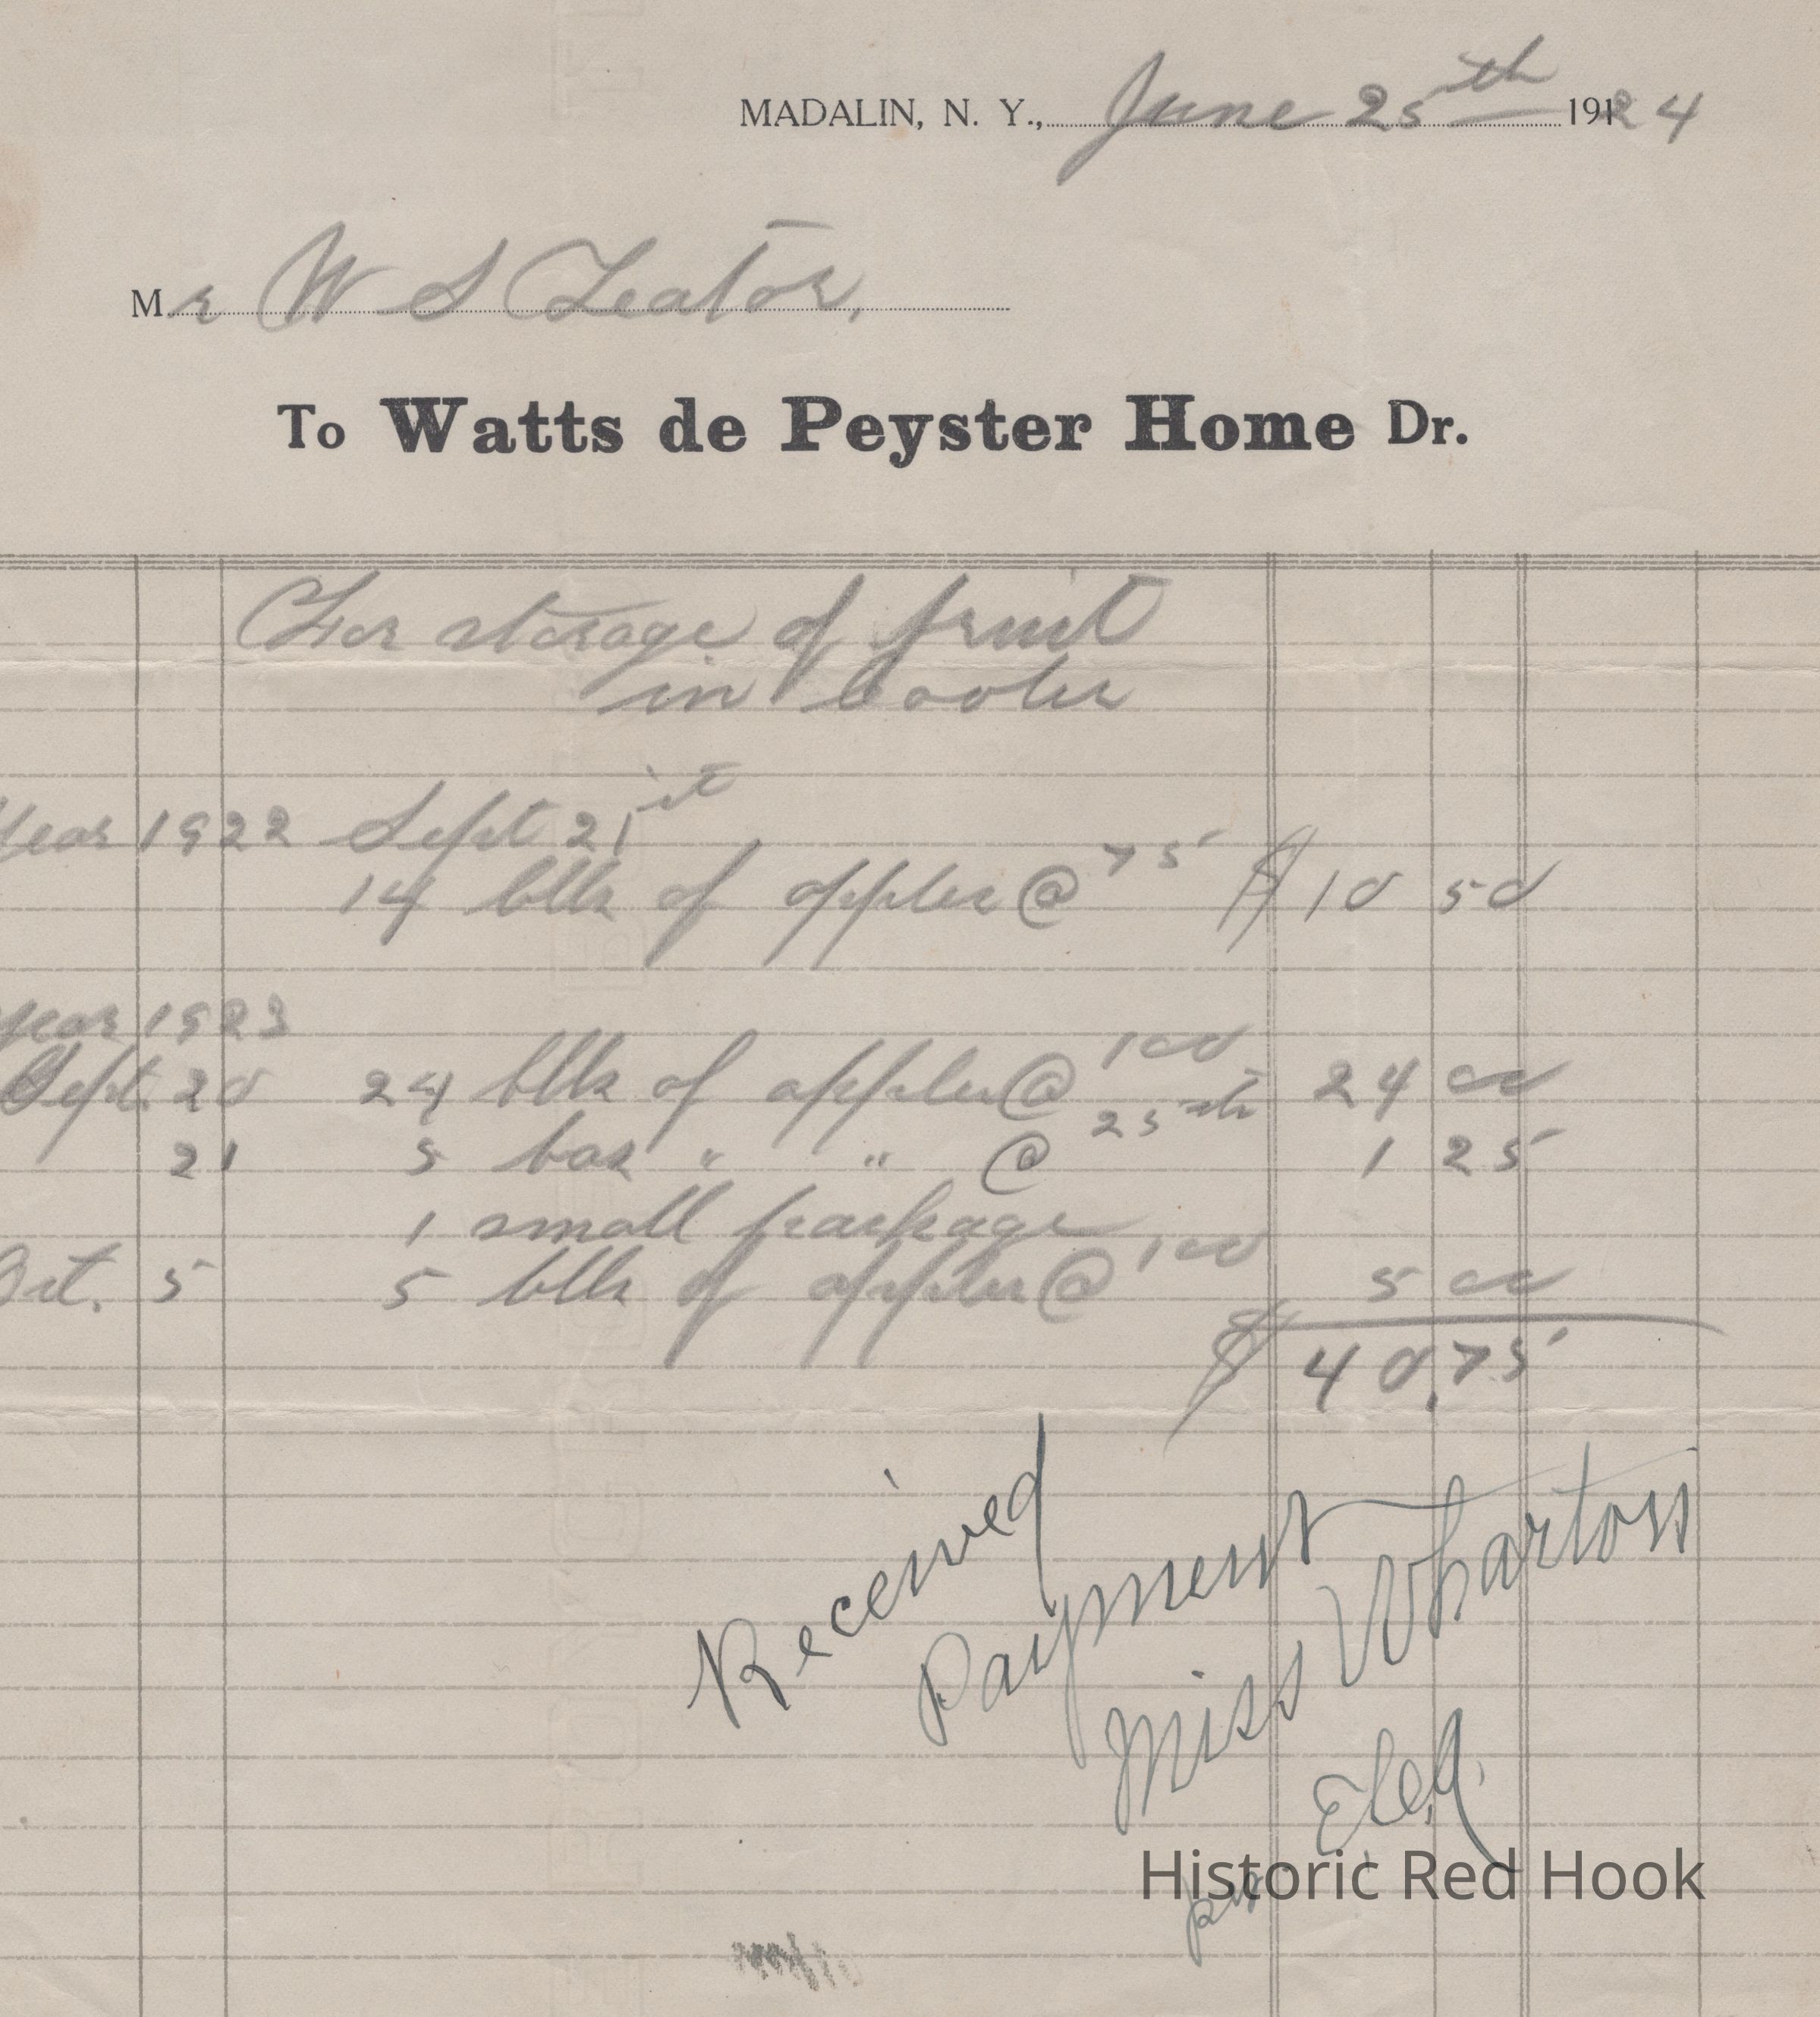 MADALIN, N. Y., June 25th 1924
Mr W S Teator,
To Watts de Peyster Home Dr.
For storage of fruit
in cooler
Year 1922 Sept 21st
14 blls of apples @ 75 $10 50
Year 1923
Sept. 20 24 blls of apples @ 1 00 24 00
21 5 box " " @ 25 cts 1 25
1 small package
Oct. 5 5 blls of apples @ 1 00 5 00
$40.75
Received
Payment
Miss Wharton
per
Historic Red Hook